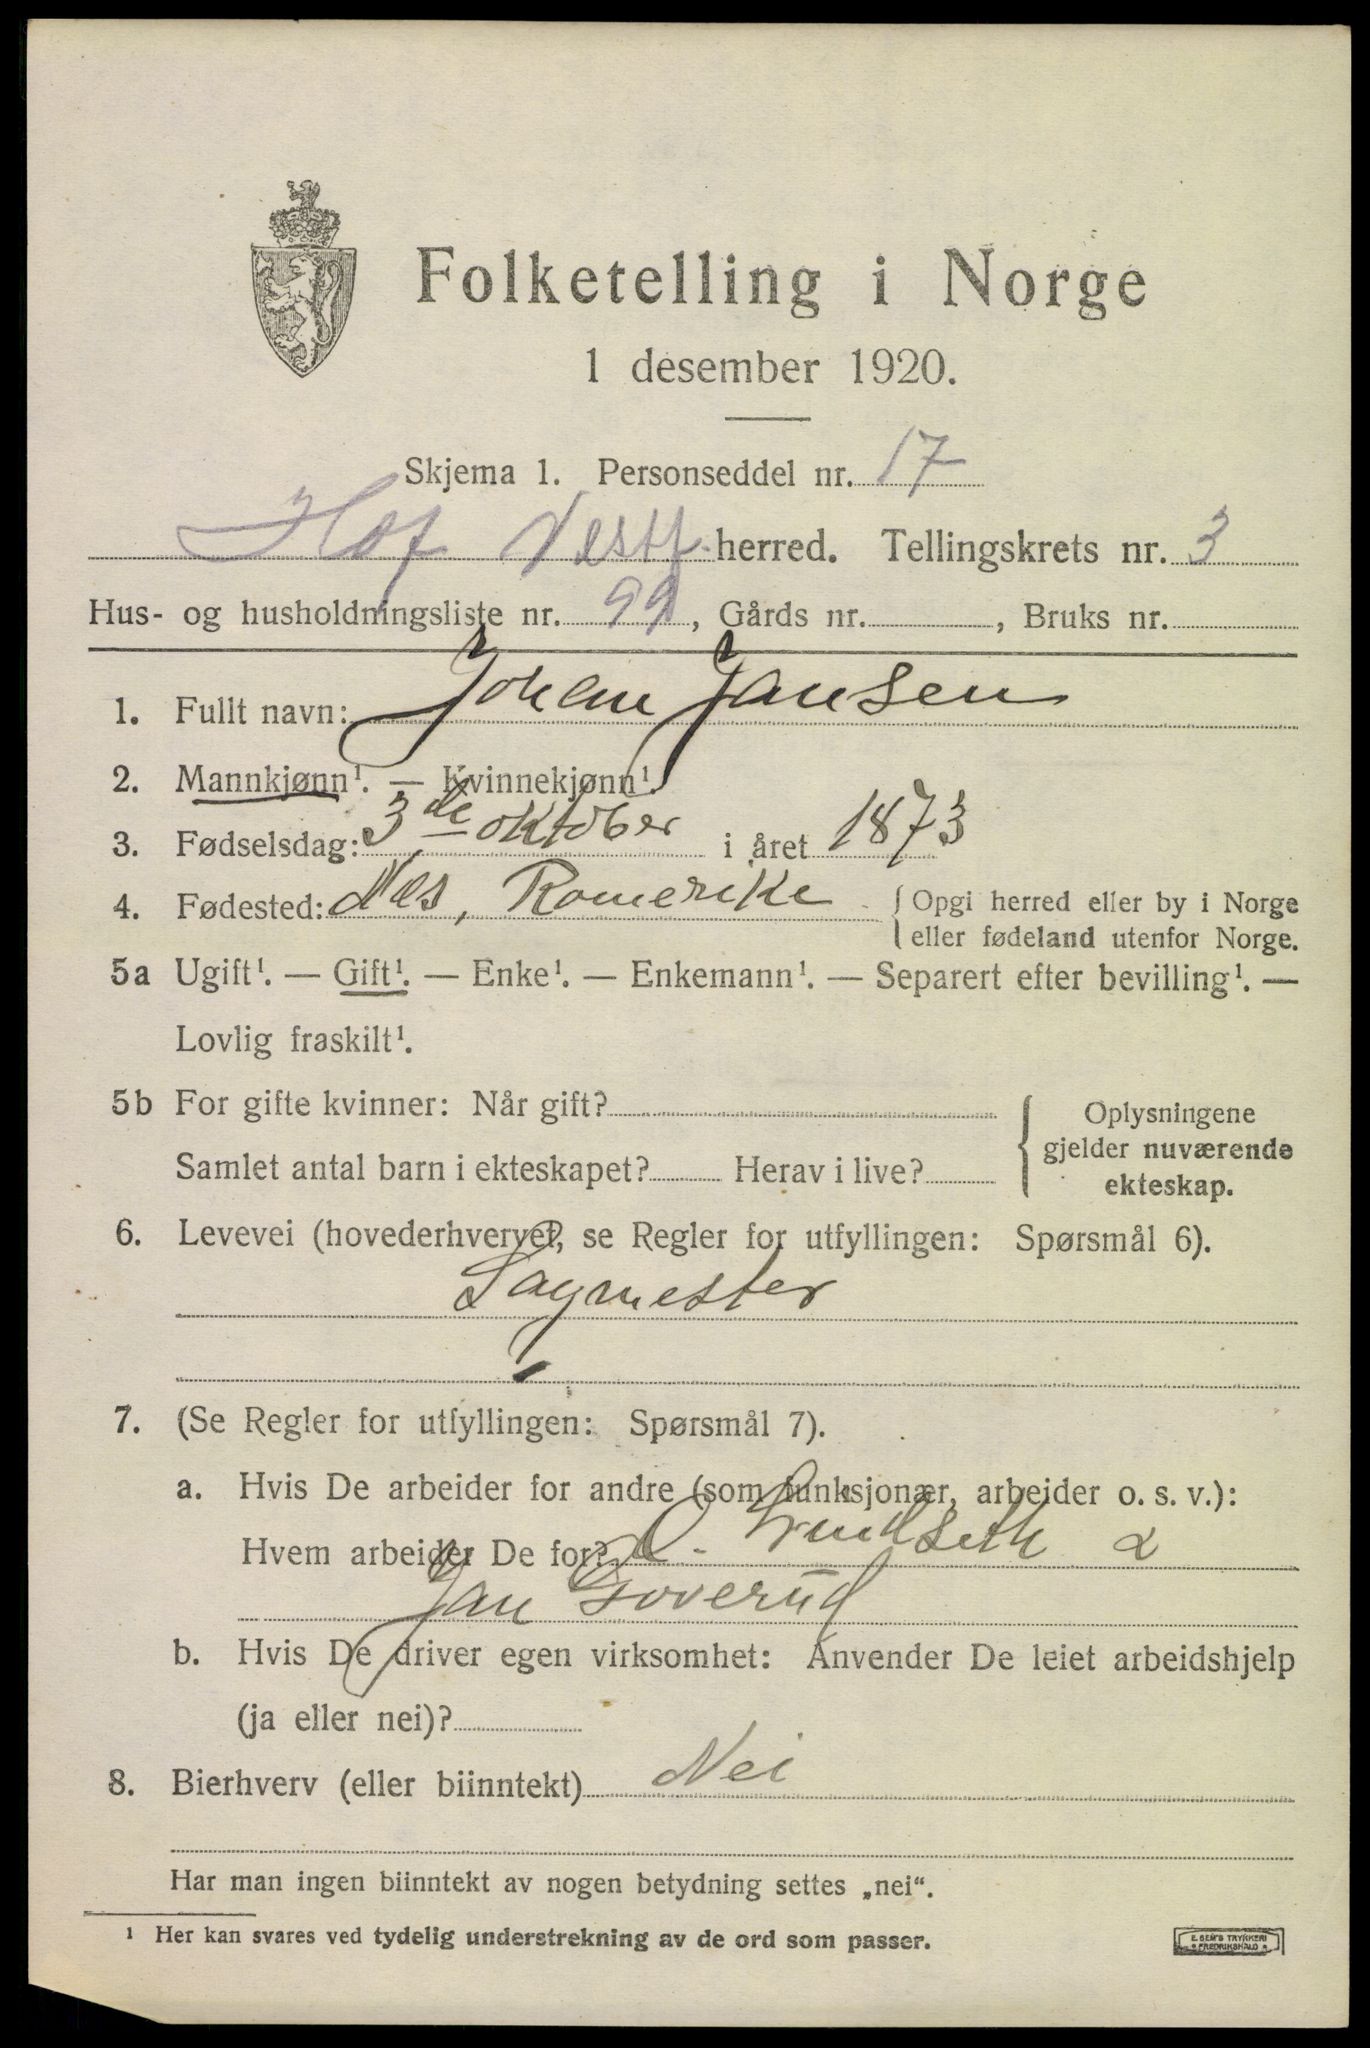 Folketelling i Norge
1 desember 1920.
Skjema 1. Personseddel nr. 17
Hof Vestf. herred. Tellingskrets nr. 3
Hus- og husholdningsliste nr. 99, Gårds nr. , Bruks nr.
1. Fullt navn: Johan Jansen
2. Mannkjønn¹. — Kvinnekjønn¹.
3. Fødselsdag: 3de oktober i året 1873
4. Fødested: Nes, Romerike { Opgi herred eller by i Norge
eller fødeland utenfor Norge.
5a Ugift¹. — Gift¹. — Enke¹. — Enkemann¹. — Separert efter bevilling¹. —
Lovlig fraskilt¹.
5b For gifte kvinner: Når gift?
Samlet antal barn i ekteskapet? Herav i live?
{ Oplysningene
gjelder nuværende
ekteskap.
6. Levevei (hovederhvervet, se Regler for utfyllingen: Spørsmål 6).
Sagmester
7. (Se Regler for utfyllingen: Spørsmål 7).
a. Hvis De arbeider for andre (som funksjonær, arbeider o. s. v.):
Hvem arbeider De for?
Jan
b. Hvis De driver egen virksomhet: Anvender De leiet arbeidshjelp
(ja eller nei)?
8. Bierhverv (eller biinntekt) Nei
Har man ingen biinntekt av nogen betydning settes „nei".
¹ Her kan svares ved tydelig understrekning av de ord som passer.
E. SEM'S TRYKKERI
FREDRIKSHALD